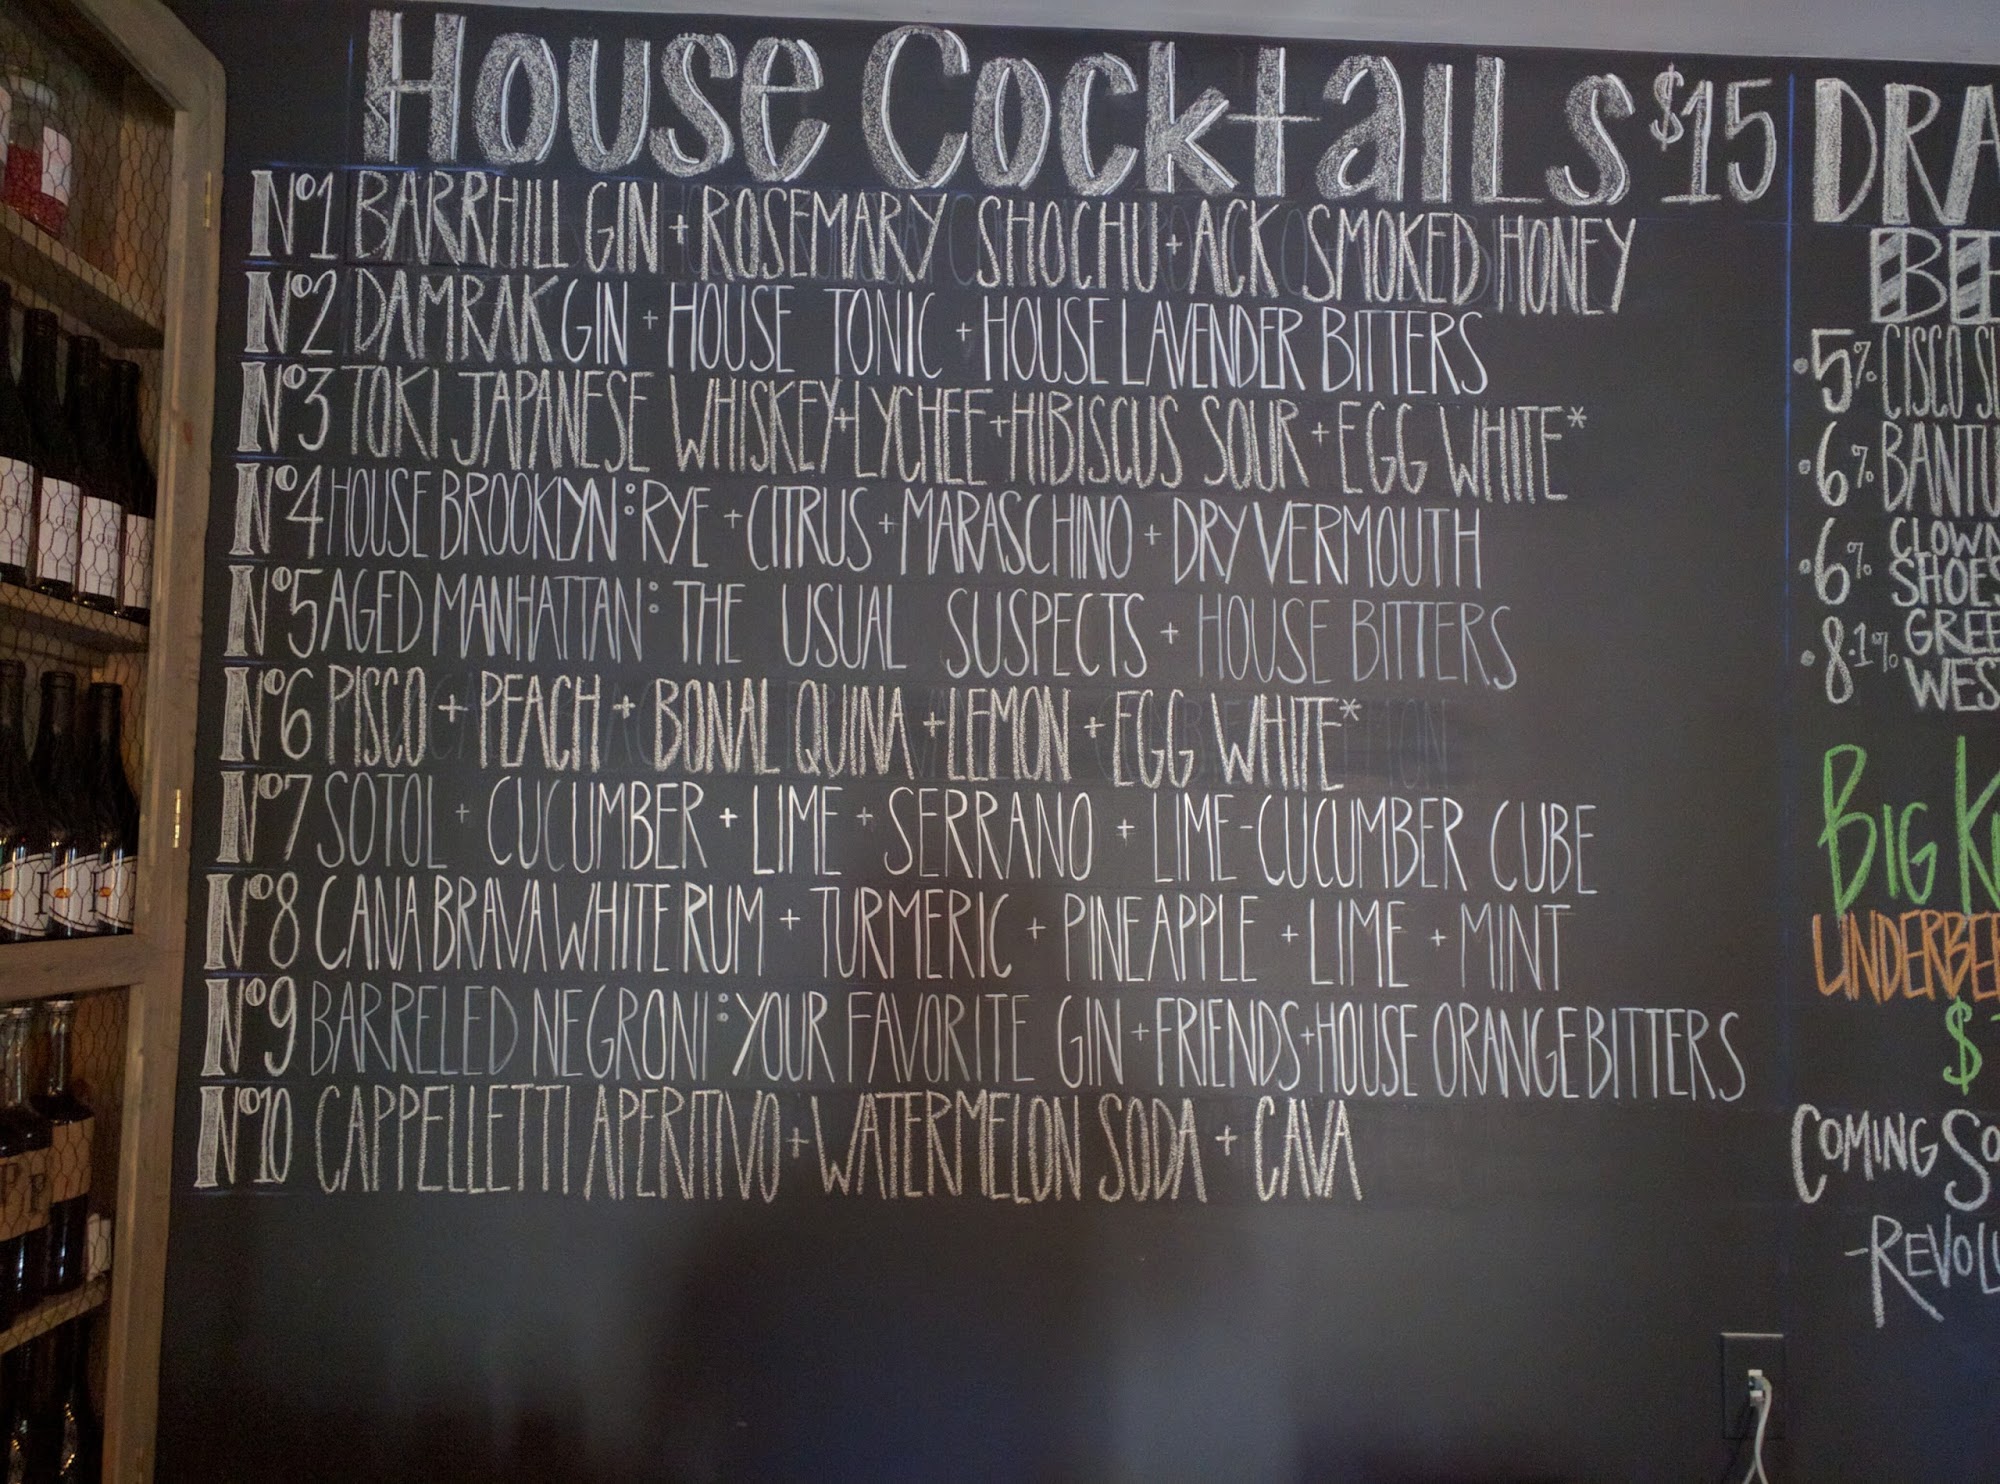 House Cocktails $15
Nº1 BARRHILL GIN + ROSEMARY SHOCHU + ACK SMOKED HONEY
Nº2 DAMRAK GIN + HOUSE TONIC + HOUSE LAVENDER BITTERS
Nº3 TOKI JAPANESE WHISKEY + LYCHEE + HIBISCUS SOUR + EGG WHITE*
Nº4 HOUSE BROOKLYN: RYE + CITRUS + MARASCHINO + DRY VERMOUTH
Nº5 AGED MANHATTAN: THE USUAL SUSPECTS + HOUSE BITTERS
Nº6 PISCO + PEACH + BONAL QUINA + LEMON + EGG WHITE*
Nº7 SOTOL + CUCUMBER + LIME + SERRANO + LIME-CUCUMBER CUBE
Nº8 CANA BRAVA WHITE RUM + TURMERIC + PINEAPPLE + LIME + MINT
Nº9 BARRELED NEGRONI: YOUR FAVORITE GIN + FRIENDS + HOUSE ORANGE BITTERS
Nº10 CAPPELLETTI APERITIVO + WATERMELON SODA + CAVA
DRA
BE
•5% CISCO SU
•6% BANTU
•6% CLOWN
SHOES
•8.1% GREE
WES
BIG K
UNDERBER
$
COMING SO
-REVOLU